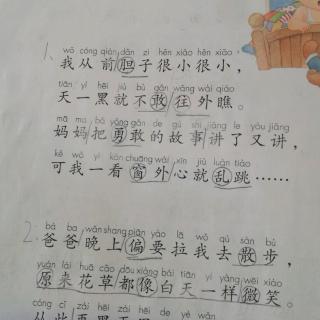 1、
wǒ cóng qián dǎn zi hěn xiǎo hěn xiǎo
我从前胆子很小很小，
tiān yì hēi jiù bù gǎn wǎng wài qiáo
天一黑就不敢往外瞧。
mā ma bǎ yǒng gǎn de gù shi jiǎng le yòu jiǎng
妈妈把勇敢的故事讲了又讲，
kě wǒ yí kàn chuāng wài xīn jiù luàn tiào
可我一看窗外心就乱跳……
2、
bà ba wǎn shang piān yào lā wǒ qù sàn bù
爸爸晚上偏要拉我去散步，
yuán lái huā cǎo dōu xiàng bái tiān yí yàng wēi xiào
原来花草都像白天一样微笑。
cóng cǐ zài hēi zài